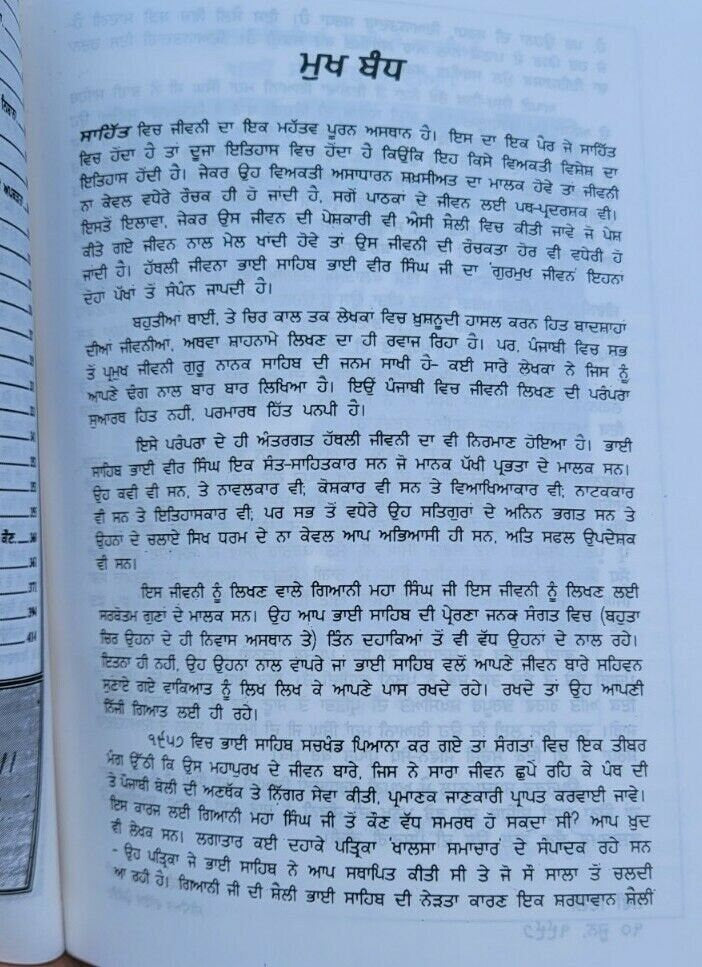 ਮੁਖ ਬੰਧ
ਸਾਹਿੱਤ ਵਿਚ ਜੀਵਨੀ ਦਾ ਇਕ ਮਹੱਤਵ ਪੂਰਨ ਅਸਥਾਨ ਹੈ। ਇਸ ਦਾ ਇਕ ਪੈਰ ਜੇ ਸਾਹਿੱਤ
ਵਿਚ ਹੋਂਦਾ ਹੈ ਤਾਂ ਦੂਜਾ ਇਤਿਹਾਸ ਵਿਚ ਹੋਂਦਾ ਹੈ ਕਿਉਂਕਿ ਇਹ ਕਿਸੇ ਵਿਅਕਤੀ ਵਿਸ਼ੇਸ਼ ਦਾ
ਇਤਿਹਾਸ ਹੋਂਦੀ ਹੈ। ਜੇਕਰ ਉਹ ਵਿਅਕਤੀ ਅਸਾਧਾਰਨ ਸ਼ਖ਼ਸੀਅਤ ਦਾ ਮਾਲਕ ਹੋਵੇ ਤਾਂ ਜੀਵਨੀ
ਨਾ ਕੇਵਲ ਵਧੇਰੇ ਰੌਚਕ ਹੀ ਹੋ ਜਾਂਦੀ ਹੈ, ਸਗੋਂ ਪਾਠਕਾਂ ਦੇ ਜੀਵਨ ਲਈ ਪਥ-ਪ੍ਰਦਰਸ਼ਕ ਵੀ।
ਇਸਤੋਂ ਇਲਾਵਾ, ਜੇਕਰ ਉਸ ਜੀਵਨ ਦੀ ਪੇਸ਼ਕਾਰੀ ਵੀ ਐਸੀ ਸ਼ੈਲੀ ਵਿਚ ਕੀਤੀ ਜਾਵੇ ਜੋ ਪੇਸ਼
ਕੀਤੇ ਗਏ ਜੀਵਨ ਨਾਲ ਮੇਲ ਖਾਂਦੀ ਹੋਵੇ ਤਾਂ ਉਸ ਜੀਵਨੀ ਦੀ ਰੌਚਕਤਾ ਹੋਰ ਵੀ ਵਧੇਰੀ ਹੋ
ਜਾਂਦੀ ਹੈ। ਹੱਥਲੀ ਜੀਵਨੀ ਭਾਈ ਸਾਹਿਬ ਭਾਈ ਵੀਰ ਸਿੰਘ ਜੀ ਦਾ 'ਗੁਰਮੁਖ ਜੀਵਨ' ਇਹਨਾਂ
ਦੋਹਾਂ ਪੱਖਾਂ ਤੋਂ ਸੰਪੰਨ ਜਾਪਦੀ ਹੈ।
ਬਹੁਤੀਆਂ ਥਾਈਂ, ਤੇ ਚਿਰ ਕਾਲ ਤਕ ਲੇਖਕਾਂ ਵਿਚ ਖ਼ੁਸ਼ਨੂਦੀ ਹਾਸਲ ਕਰਨ ਹਿਤ ਬਾਦਸ਼ਾਹਾਂ
ਦੀਆਂ ਜੀਵਨੀਆਂ, ਅਥਵਾ ਸ਼ਾਹਨਾਮੇ ਲਿਖਣ ਦਾ ਹੀ ਰਵਾਜ ਰਿਹਾ ਹੈ। ਪਰ, ਪੰਜਾਬੀ ਵਿਚ ਸਭ
ਤੋਂ ਪ੍ਰਮੁਖ ਜੀਵਨੀ ਗੁਰੂ ਨਾਨਕ ਸਾਹਿਬ ਦੀ ਜਨਮ ਸਾਖੀ ਹੈ- ਕਈ ਸਾਰੇ ਲੇਖਕਾਂ ਨੇ ਜਿਸ ਨੂੰ
ਆਪਣੇ ਢੰਗ ਨਾਲ ਬਾਰ ਬਾਰ ਲਿਖਿਆ ਹੈ। ਇਉਂ ਪੰਜਾਬੀ ਵਿਚ ਜੀਵਨੀ ਲਿਖਣ ਦੀ ਪਰੰਪਰਾ
ਸੁਆਰਥ ਹਿਤ ਨਹੀਂ, ਪਰਮਾਰਥ ਹਿੱਤ ਪਨਪੀ ਹੈ।
ਇਸੇ ਪਰੰਪਰਾ ਦੇ ਹੀ ਅੰਤਰਗਤ ਹੱਥਲੀ ਜੀਵਨੀ ਦਾ ਵੀ ਨਿਰਮਾਣ ਹੋਇਆ ਹੈ। ਭਾਈ
ਸਾਹਿਬ ਭਾਈ ਵੀਰ ਸਿੰਘ ਇਕ ਸੰਤ-ਸਾਹਿਤਕਾਰ ਸਨ ਜੋ ਮਾਨਕ ਪੱਖੀ ਪ੍ਰਭਤਾ ਦੇ ਮਾਲਕ ਸਨ।
ਉਹ ਕਵੀ ਵੀ ਸਨ, ਤੇ ਨਾਵਲਕਾਰ ਵੀ; ਕੋਸ਼ਕਾਰ ਵੀ ਸਨ ਤੇ ਵਿਆਖਿਆਕਾਰ ਵੀ; ਨਾਟਕਕਾਰ
ਵੀ ਸਨ ਤੇ ਇਤਿਹਾਸਕਾਰ ਵੀ; ਪਰ ਸਭ ਤੋਂ ਵਧੇਰੇ ਉਹ ਸਤਿਗੁਰਾਂ ਦੇ ਅਨਿਨ ਭਗਤ ਸਨ ਤੇ
ਉਹਨਾਂ ਦੇ ਚਲਾਏ ਸਿਖ ਧਰਮ ਦੇ ਨਾ ਕੇਵਲ ਆਪ ਅਭਿਆਸੀ ਹੀ ਸਨ, ਅਤਿ ਸਫਲ ਉਪਦੇਸ਼ਕ
ਵੀ ਸਨ।
ਇਸ ਜੀਵਨੀ ਨੂੰ ਲਿਖਣ ਵਾਲੇ ਗਿਆਨੀ ਮਹਾ ਸਿੰਘ ਜੀ ਇਸ ਜੀਵਨੀ ਨੂੰ ਲਿਖਣ ਲਈ
ਸਰਬੋਤਮ ਗੁਣਾਂ ਦੇ ਮਾਲਕ ਸਨ। ਉਹ ਆਪ ਭਾਈ ਸਾਹਿਬ ਦੀ ਪ੍ਰੇਰਣਾ ਜਨਕ ਸੰਗਤ ਵਿਚ (ਬਹੁਤਾ
ਚਿਰ ਉਹਨਾਂ ਦੇ ਹੀ ਨਿਵਾਸ ਅਸਥਾਨ ਤੇ) ਤਿੰਨ ਦਹਾਕਿਆਂ ਤੋਂ ਵੀ ਵੱਧ ਉਹਨਾਂ ਦੇ ਨਾਲ ਰਹੇ।
ਇਤਨਾ ਹੀ ਨਹੀਂ, ਉਹ ਉਹਨਾਂ ਨਾਲ ਵਾਪਰੇ ਜਾਂ ਭਾਈ ਸਾਹਿਬ ਵਲੋਂ ਆਪਣੇ ਜੀਵਨ ਬਾਰੇ ਸਹਿਵਨ
ਸੁਣਾਏ ਗਏ ਵਾਕਿਆਤ ਨੂੰ ਲਿਖ ਲਿਖ ਕੇ ਆਪਣੇ ਪਾਸ ਰਖਦੇ ਰਹੇ। ਰਖਦੇ ਤਾਂ ਉਹ ਆਪਣੀ
ਨਿੱਜੀ ਗਿਆਤ ਲਈ ਹੀ ਰਹੇ।
੧੯੫੭ ਵਿਚ ਭਾਈ ਸਾਹਿਬ ਸਚਖੰਡ ਪਿਆਨਾ ਕਰ ਗਏ ਤਾਂ ਸੰਗਤਾਂ ਵਿਚ ਇਕ ਤੀਬਰ
ਮੰਗ ਉੱਠੀ ਕਿ ਉਸ ਮਹਾਪੁਰਖ ਦੇ ਜੀਵਨ ਬਾਰੇ, ਜਿਸ ਨੇ ਸਾਰਾ ਜੀਵਨ ਛੁਪੇ ਰਹਿ ਕੇ ਪੰਥ ਦੀ
ਤੇ ਪੰਜਾਬੀ ਬੋਲੀ ਦੀ ਅਣਥੱਕ ਤੇ ਨਿੱਗਰ ਸੇਵਾ ਕੀਤੀ, ਪ੍ਰਮਾਣਕ ਜਾਣਕਾਰੀ ਪ੍ਰਾਪਤ ਕਰਵਾਈ ਜਾਵੇ।
ਇਸ ਕਾਰਜ ਲਈ ਗਿਆਨੀ ਮਹਾਂ ਸਿੰਘ ਜੀ ਤੋਂ ਕੌਣ ਵੱਧ ਸਮਰਥ ਹੋ ਸਕਦਾ ਸੀ? ਆਪ ਖ਼ੁਦ
ਵੀ ਲੇਖਕ ਸਨ। ਲਗਾਤਾਰ ਕਈ ਦਹਾਕੇ ਪਤ੍ਰਿਕਾ ਖਾਲਸਾ ਸਮਾਚਾਰ ਦੇ ਸੰਪਾਦਕ ਰਹੇ ਸਨ
- ਉਹ ਪਤ੍ਰਿਕਾ ਜੋ ਭਾਈ ਸਾਹਿਬ ਨੇ ਆਪ ਸਥਾਪਿਤ ਕੀਤੀ ਸੀ ਤੇ ਜੋ ਸੌ ਸਾਲਾ ਤੋਂ ਚਲਦੀ
ਆ ਰਹੀ ਹੈ। ਗਿਆਨੀ ਜੀ ਦੀ ਸ਼ੈਲੀ ਭਾਈ ਸਾਹਿਬ ਦੀ ਨੇੜਤਾ ਕਾਰਣ ਇਕ ਸ਼ਰਧਾਵਾਨ ਸ਼ੈਲੀ